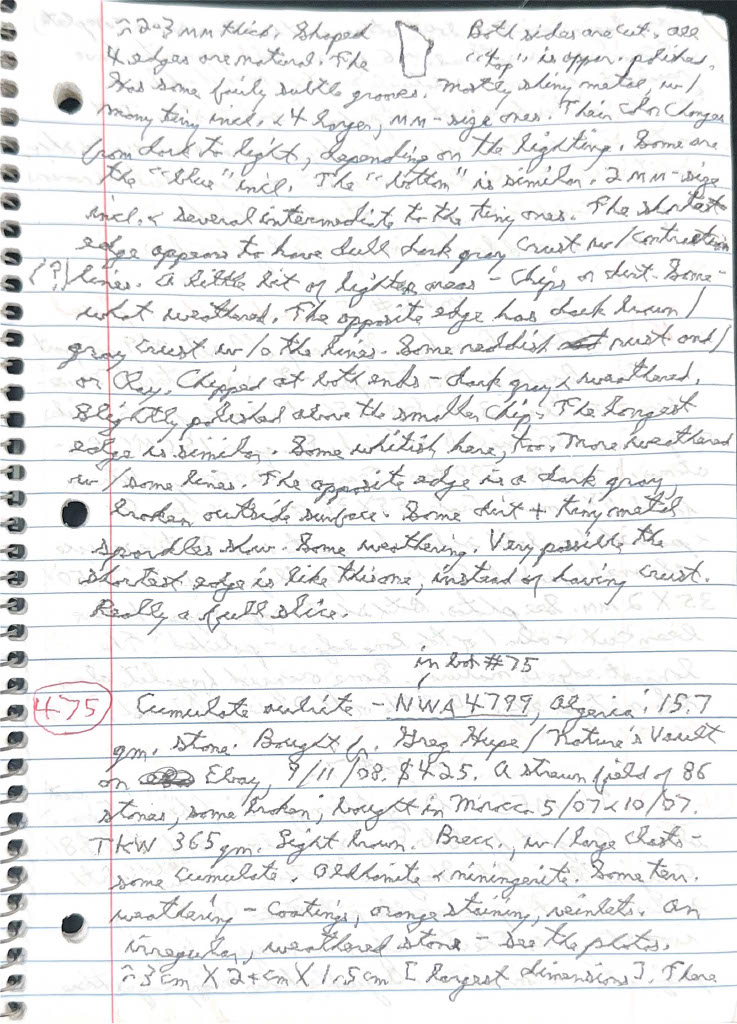 ~2-3 mm thick. Shaped Both sides are cut, all
4 edges are natural. The "top" is appar. polished.
Has some fairly subtle grooves. Mostly shiny metal, w/
many tiny incl. & 4 larger, mm-size ones. Their color changes
from dark to light, depending on the lighting. Some are
the "blue" incl. The "bottom" is similar. 2 mm-size
incl. & several intermediate to the tiny ones. The shortest
edge appears to have dull dark gray crust w/contraction
(?) lines. A little bit of lighter areas - chips or dirt. Some-
what weathered. The opposite edge has dark brown/
gray crust w/o the lines. Some reddish rust and/
or clay. Chipped at both ends - dark gray & weathered.
Slightly polished above the smaller chip. The longest
edge is similar. Some whitish here, too. More weathered
w/some lines. The opposite edge is a dark gray,
broken outside surface. Some dirt + tiny metal
show. Some weathering. Very possible the
shortest edge is like this one, instead of having crust.
Really a full slice.
in box #75
475 Cumulate - NWA 4799, Algeria: 15.7
gm. stone. Bought fr. Greg Hupe/Nature's Vault
on Ebay, 9/11/08. $425. A strewn field of 86
stones, some broken; bought in Morocco 5/07 & 10/07.
TKW 365 gm. Light brown. Brecc., w/large clasts -
some cumulate. Oldhamite & niningerite. Some terr.
weathering - coatings, orange staining, veinlets. An
irregular, weathered stone - see the photos.
~3 cm X 2+ cm X 1.5 cm [largest dimensions]. There